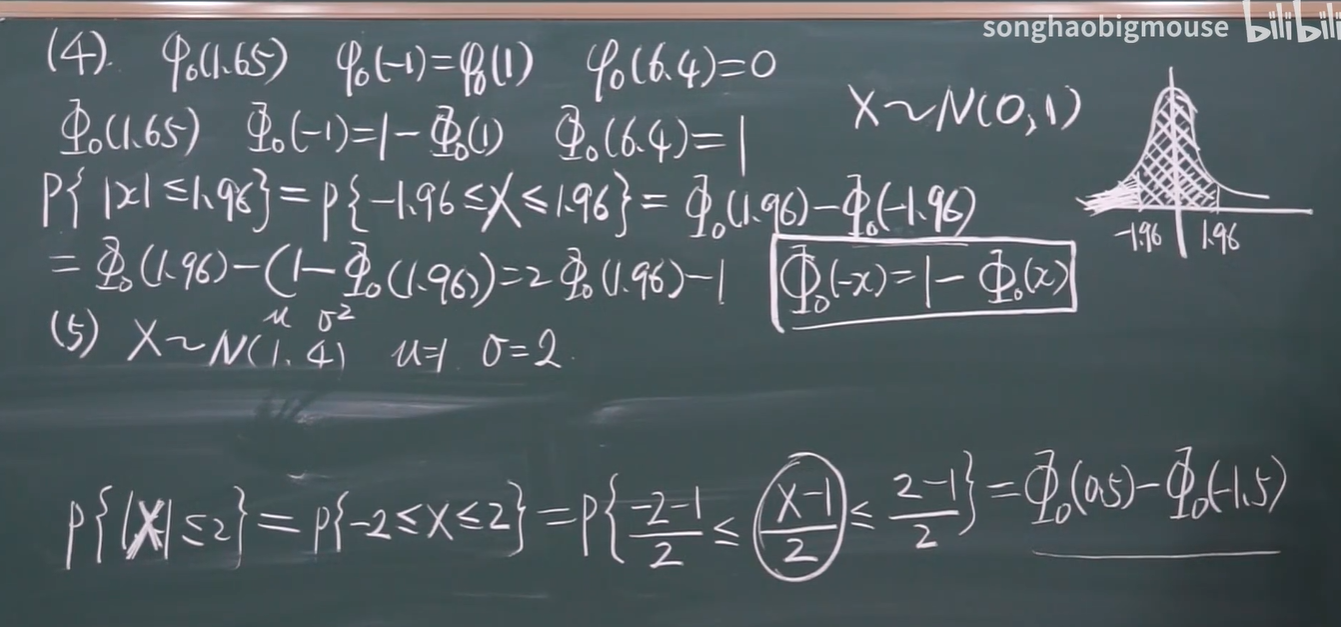 songhaobigmouse bilibili
(4). φ₀(1.65) φ₀(-1)=φ₀(1) φ₀(6.4)=0
Φ₀(1.65) Φ₀(-1)=1-Φ₀(1) Φ₀(6.4)=1
X~N(0,1)
P{|x|≤1.96}=P{-1.96≤X≤1.96}=Φ₀(1.96)-Φ₀(-1.96)
-1.96 1.96
=Φ₀(1.96)-(1-Φ₀(1.96))=2Φ₀(1.96)-1
Φ₀(-x)=1-Φ₀(x)
μ σ²
(5) X~N(1,4) μ=1 σ=2.
P{|X|≤2}=P{-2≤X≤2}=P{(-2-1)/2≤(X-1)/2≤(2-1)/2}=Φ₀(0.5)-Φ₀(-1.5)